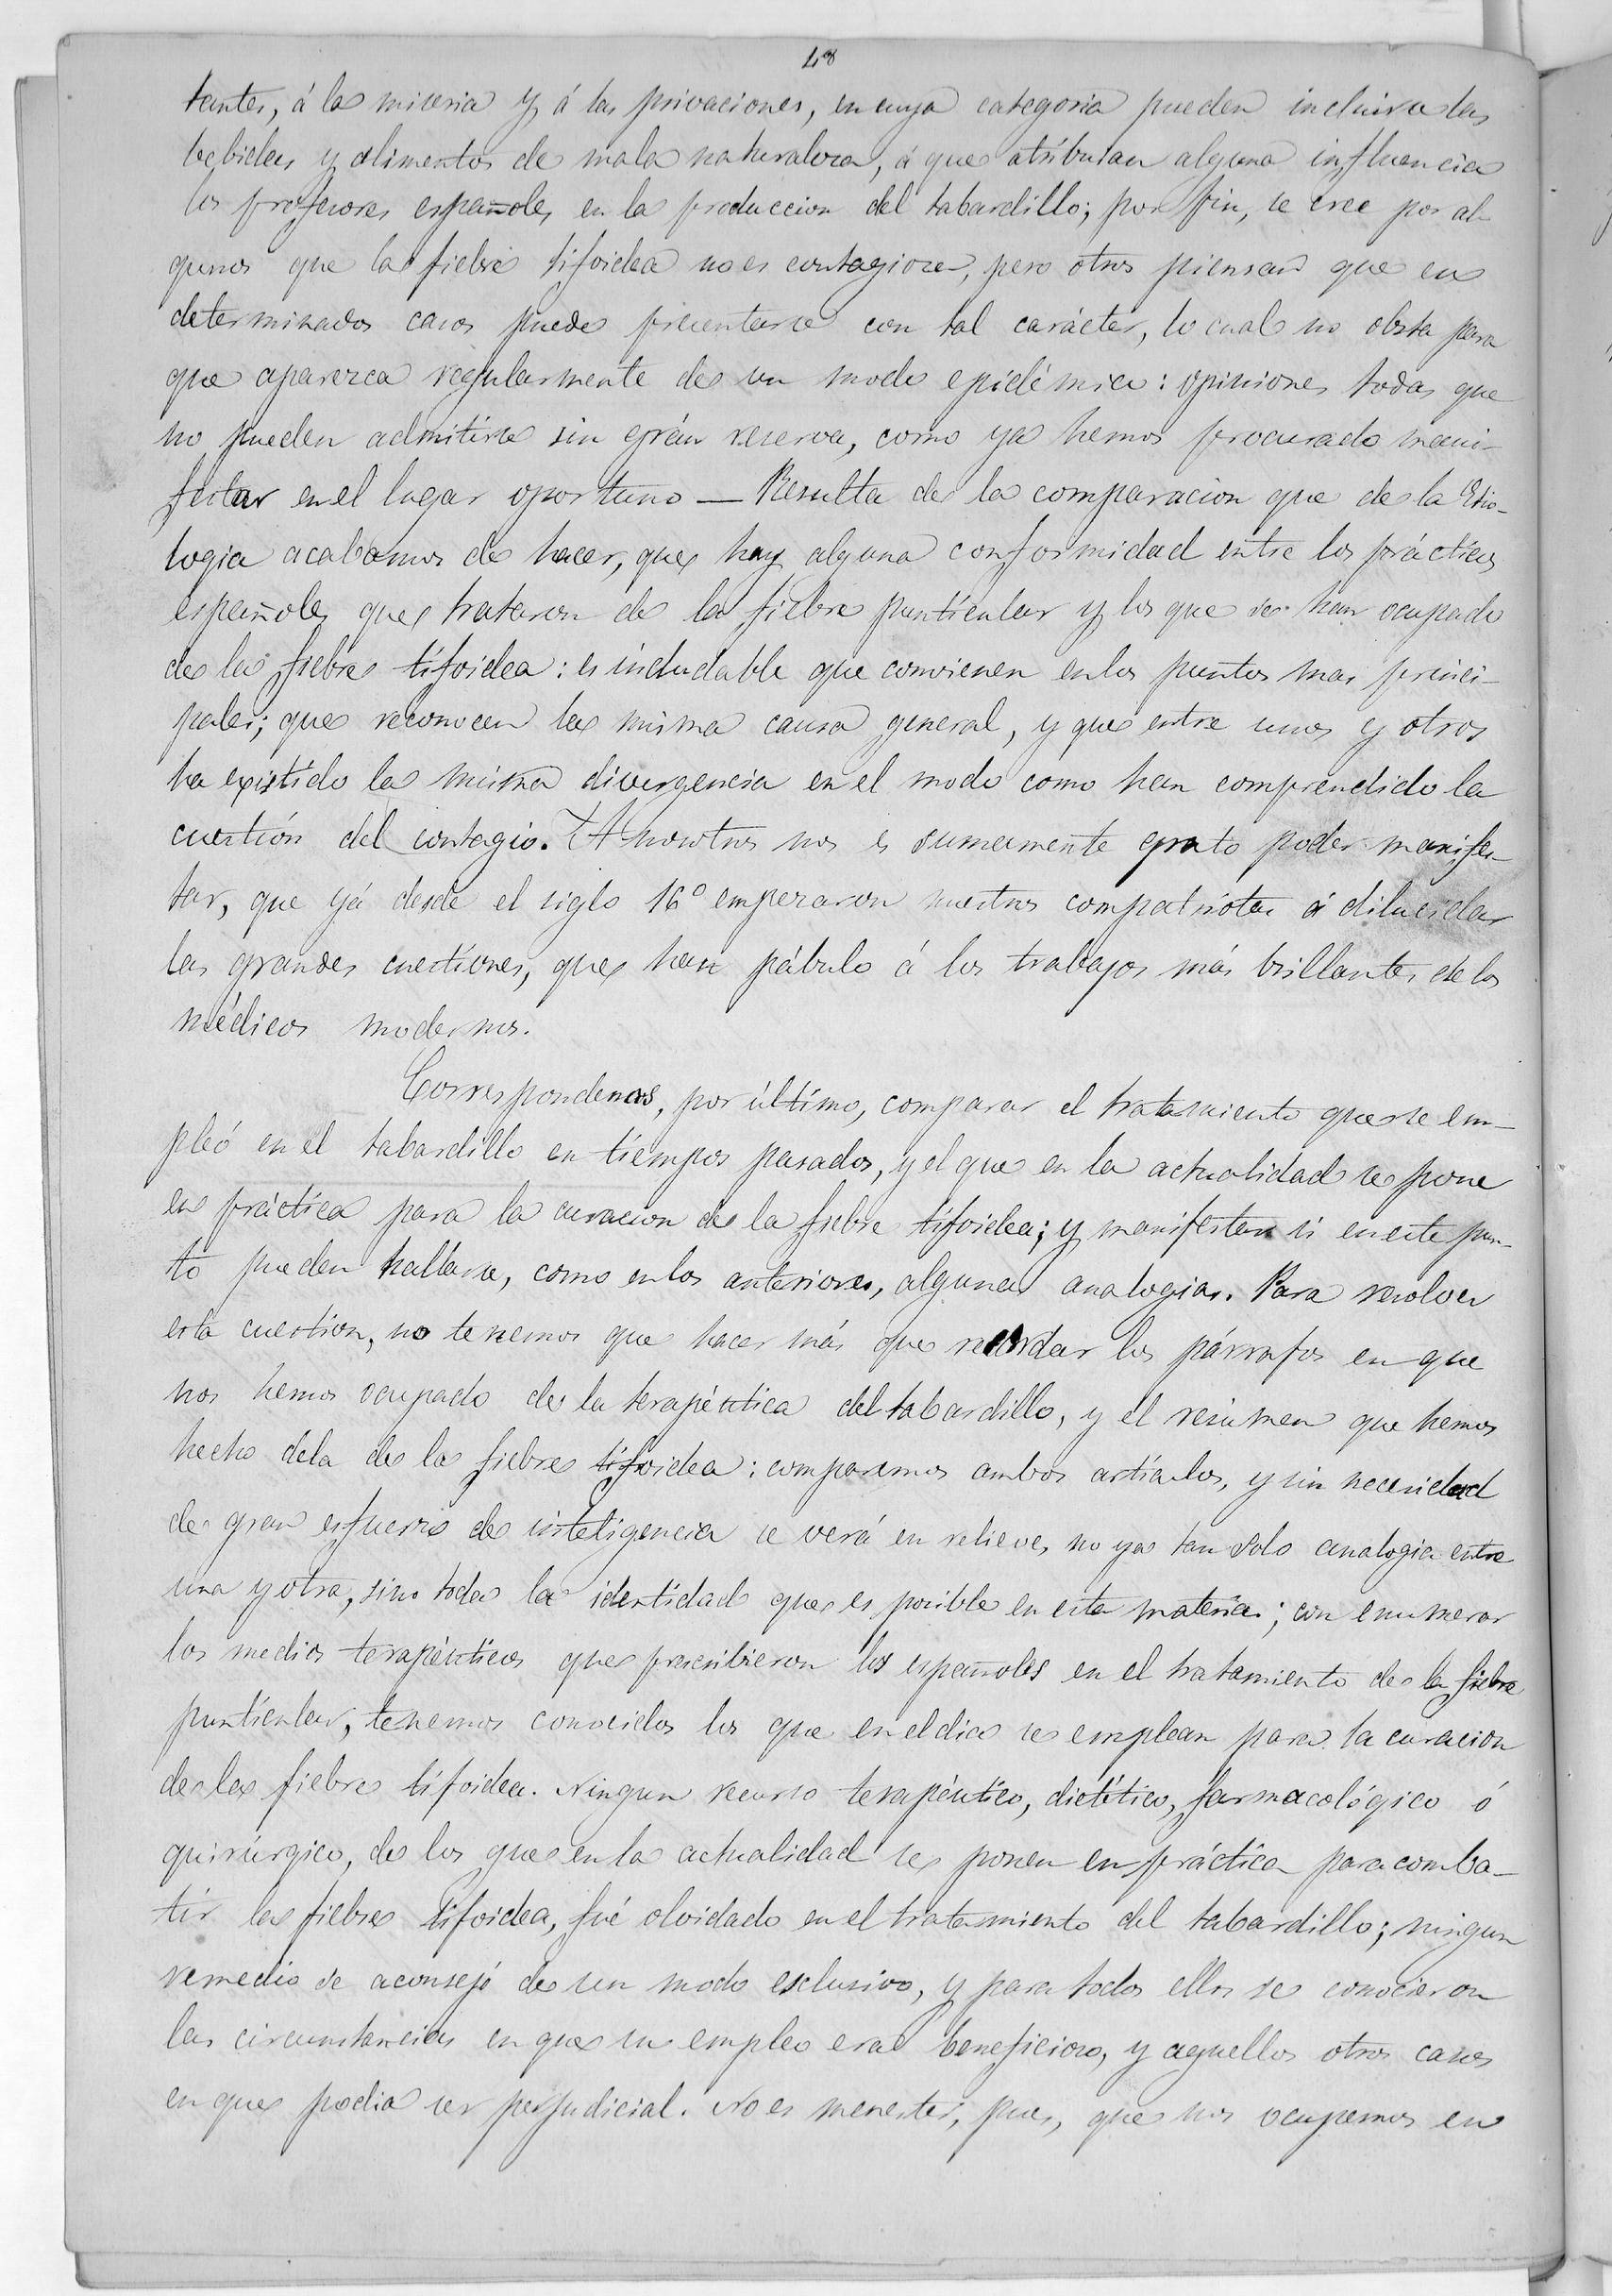 48
tantes, á la miseria y á las privaciones, en cuya categoria pueden incluirse las
bebidas y alimentos de mala naturaleza, á que atribuian alguna influencia
los profesores españoles en la produccion del tabardillo; por fin, se cree por al-
gunos que la fiebre tifoidea no es contagiosa, pero otros piensan que en
determinados casos puede presentarse con tal carácter, lo cual no obsta para
que aparezca regularmente de un modo epidémico: opiniones todas que
no pueden admitirse sin grán reserva, como ya hemos procurado mani-
festar en el lugar oportuno — Resulta de la comparacion que de la Etio-
logia acabamos de hacer, que hay alguna conformidad entre los prácticos
españoles que trataron de la fiebre punticular y los que se han ocupado
de la fiebre tifoidea: es indudable que convienen en los puntos mas princi-
pales; que reconocen la misma causa general, y que entre unos y otros
ha existido la misma divergencia en el modo cómo han comprendido la
cuestión del contagio. A nosotros nos es sumamente grato poder manifes-
tar, que yá desde el siglo 16º empezaron nuestros compatriotas á dilucidar
las grandes cuestiones, que han pábulo á los trabajos más brillantes de los
médicos modernos.
Correspondenos, por último, comparar el tratamiento que se em-
pleó en el tabardillo en tiempos pasados, y el que en la actualidad se pone
en práctica para la curacion de la fiebre tifoidea; y manifestar si en este pun-
to pueden hallarse, como en los anteriores, algunas analogias. Para resolver
esta cuestion, no tenemos que hacer más que recordar los párrafos en que
nos hemos ocupado de la terapéutica del tabardillo, y el resúmen que hemos
hecho dela de la fiebre tifoidea: comparemos ambos artículos, y sin necesidad
de gran esfuerzo de inteligencia se verá en relieve, no ya tan solo analogia entre
una y otra, sino toda la identidad que es posible en esta materia; con enumerar
los medios terapéuticos que prescribieron los españoles en el tratamiento de la fiebre
punticular, tenemos conocidos los que en el dia se emplean para la curacion
de la fiebre tifoidea. Ningun recurso terapéutico, dietético, farmacológico ó
quirúrgico, de los que en la actualidad se ponen en práctica para comba-
tir la fiebre tifoidea, fué olvidado en el tratamiento del tabardillo; ningun
remedio se aconsejó de un modo esclusivo, y para todos ellos se conocieron
las circunstancias en que su empleo era beneficioso, y aquellos otros casos
en que podia ser perjudicial. No es menester, pues, que nos ocupemos en